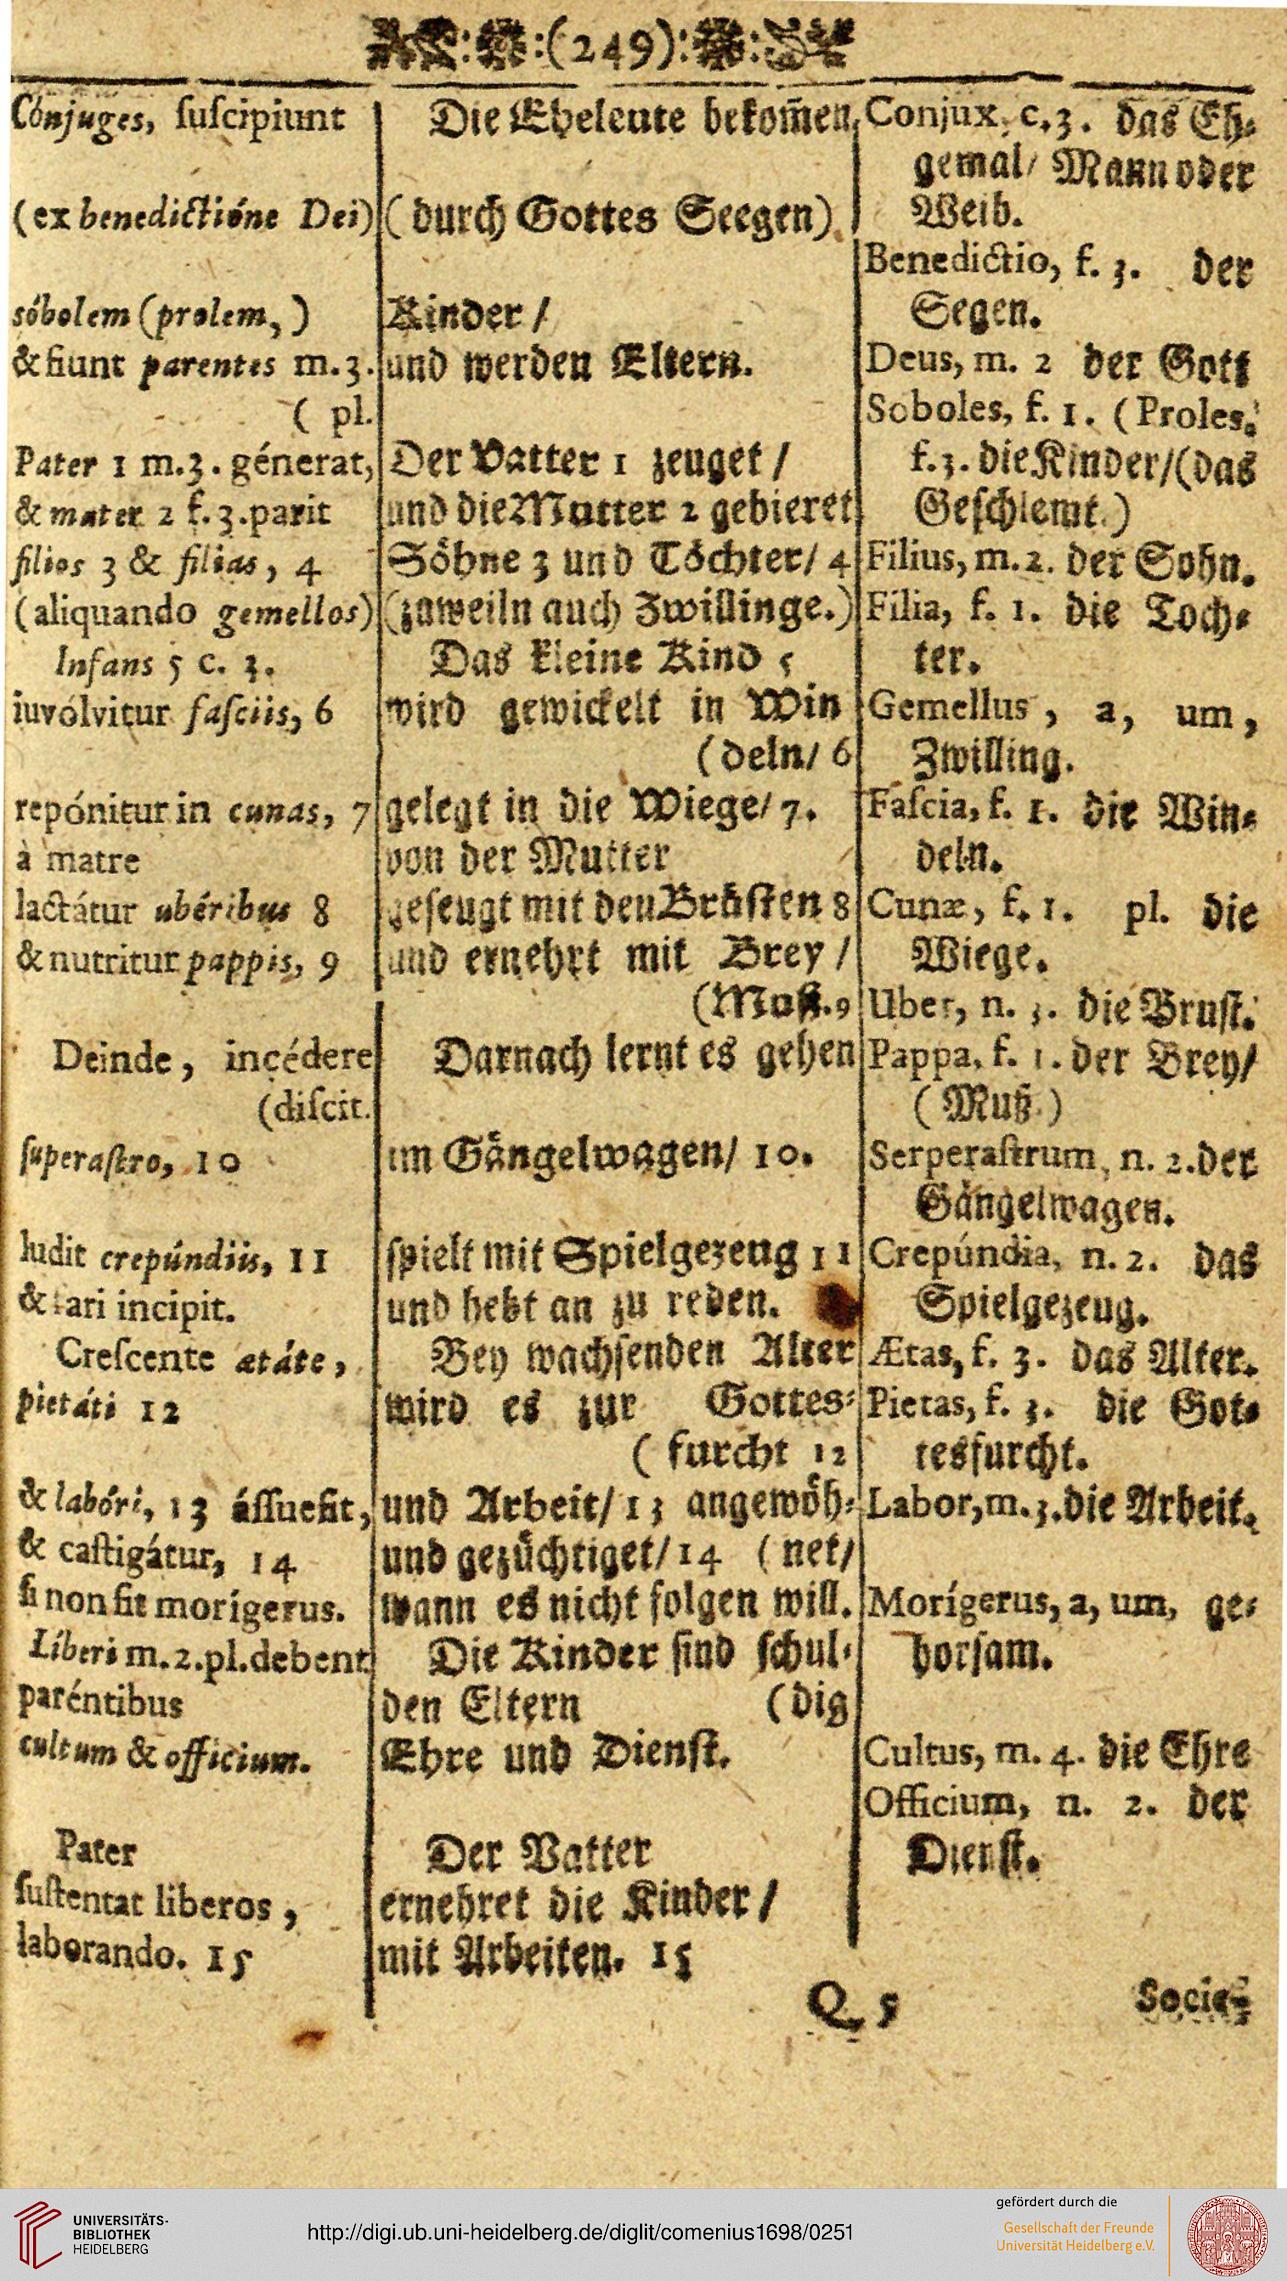 :(249):
Cónjuges, suscipiunt
(ex benedictióne Dei)
sóbolem (prolem,)
& fiunt parentes m.3.
( pl.
Pater 1 m.3. génerat,
& mater 2 f.3. parit
filios 3 & filias, 4
(aliquando gemellos)
Infans 5 c. 3.
iuvólvitur fasciis, 6
repónitur in cunas, 7
à matre
lactátur ubéribus 8
& nutritur pappis, 9
Deinde, incédere
(discit.
superastro, 10
ludit crepúndiis, 11
& fari incipit.
Crescente ætáte,
pietáti 12
& labóri, 13 ássuefit,
& castigátur, 14
si non sit morígerus.
Líberi m.2.pl. debent
paréntibus
cultum & officium.
Pater
sustentat liberos,
laborando. 15
Die Eheleute bekom̃en
(durch Gottes Seegen)
Kinder /
und werden Eltern.
Der Vatter 1 zeuget /
und die Mutter 2 gebieret
Söhne 3 und Töchter/ 4
(zuweiln auch Zwillinge.)
Das kleine Kind 5
wird gewickelt in Win
(deln/ 6
gelegt in die Wiege/ 7.
von der Mutter
geseugt mit den Brüsten 8
und ernehrt mit Brey /
(Muß. 9
Darnach lernt es gehen
im Gängelwagen/ 10.
spielt mit Spielgezeug 11
und hebt an zu reden.
Bey wachsenden Alter
wird es zur Gottes-
( furcht 12
und Arbeit/ 13 angewöh-
und gezüchtiget/ 14 ( net/
wann es nicht folgen will.
Die Kinder sind schul-
den Eltern (dig
Ehre und Dienst.
Der Vatter
ernehret die Kinder /
mit Arbeiten. 15
Conjux, c.3. das Eh-
gemal/ Mann oder
Weib.
Benedictio, f. 3. der
Segen.
Deus, m. 2 der Gott
Soboles, f. 1. (Proles,
f.3. die Kinder/(das
Geschlemt.)
Filius, m.2. der Sohn.
Filia, f. 1. die Toch-
ter.
Gemellus, a, um,
Zwilling.
Fascia, f. 1. die Win-
deln.
Cunæ, f. 1. pl. die
Wiege.
Uber, n. 3. die Brust.
Pappa, f. 1. der Brey/
(Muß.)
Serperastrum, n. 2. der
Gängelwagen.
Crepúndia, n. 2. das
Spielgezeug.
Ætas, f. 3. das Alter.
Pietas, f. 3. die Got-
tesfurcht.
Labor, m.3. die Arbeit.
Morígerus, a, um, ge-
horsam.
Cultus, m. 4. die Ehre
Officium, n. 2. der
Dienst.
Q 5 Socie-
UNIVERSITÄTS-
BIBLIOTHEK
HEIDELBERG
http://digi.ub.uni-heidelberg.de/diglit/comenius1698/0251
gefördert durch die
Gesellschaft der Freunde
Universität Heidelberg e.V.